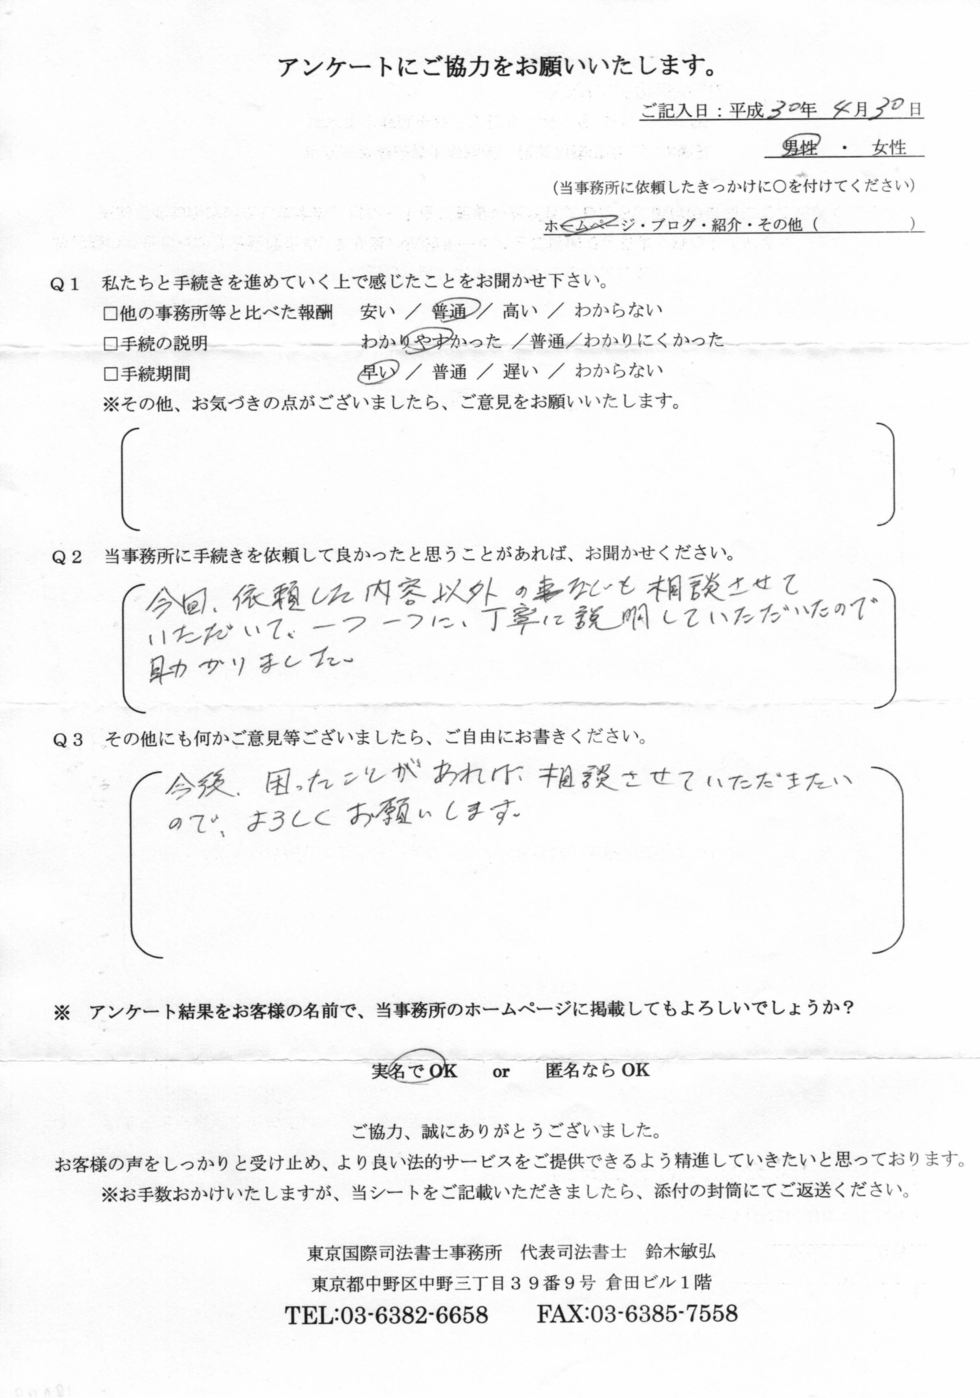 アンケートにご協力をお願いいたします。
ご記入日：平成30年 4月30日
男性 ・ 女性
（当事務所に依頼したきっかけに○を付けてください）
ホームページ・ブログ・紹介・その他（　　　　　）
Q1 私たちと手続きを進めていく上で感じたことをお聞かせ下さい。
□他の事務所等と比べた報酬 安い ／ 普通 ／ 高い ／ わからない
□手続の説明 わかりやすかった ／普通／わかりにくかった
□手続期間 早い ／ 普通 ／ 遅い ／ わからない
※その他、お気づきの点がございましたら、ご意見をお願いいたします。
Q2 当事務所に手続きを依頼して良かったと思うことがあれば、お聞かせください。
今回、依頼した内容以外の事なども相談させて
いただいて、一つ一つに、丁寧に説明していただいたので
助かりました。
Q3 その他にも何かご意見等ございましたら、ご自由にお書きください。
今後、困ったことがあれば、相談させていただきたい
ので、よろしくお願いします。
※ アンケート結果をお客様の名前で、当事務所のホームページに掲載してもよろしいでしょうか？
実名でOK or 匿名ならOK
ご協力、誠にありがとうございました。
お客様の声をしっかりと受け止め、より良い法的サービスをご提供できるよう精進していきたいと思っております。
※お手数おかけいたしますが、当シートをご記載いただきましたら、添付の封筒にてご返送ください。
東京国際司法書士事務所 代表司法書士 鈴木敏弘
東京都中野区中野三丁目39番9号 倉田ビル1階
TEL:03-6382-6658 FAX:03-6385-7558